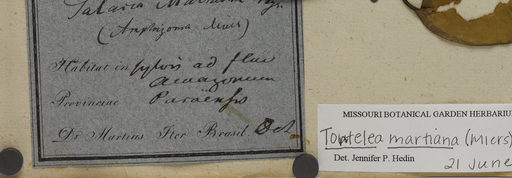 Salacia Martiana
(Amphizoma Miers)
Habitat in sylvis ad fluv
Amazonum
Provinciae Paraënsis
Dr Martius Iter Brasil. Oct
MISSOURI BOTANICAL GARDEN HERBARIU
Tontelea martiana (Miers)
Det. Jennifer P. Hedin
21 June